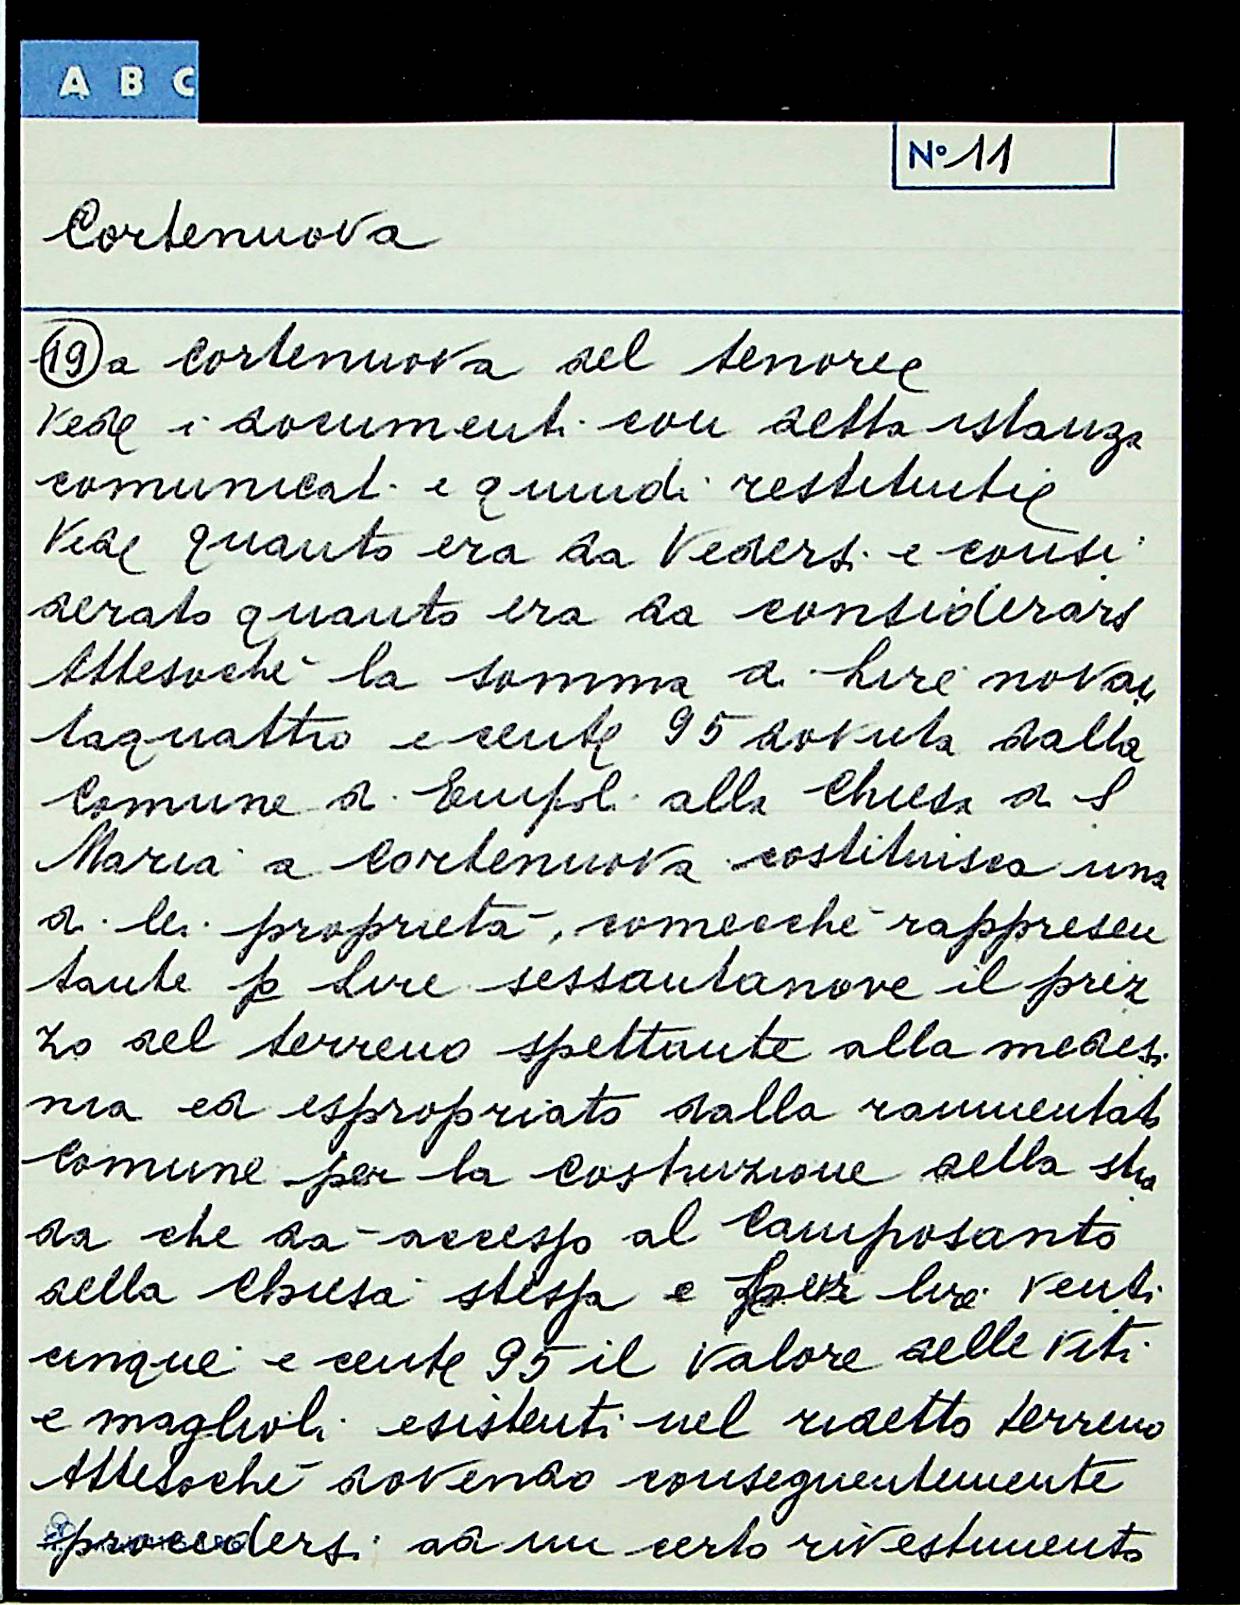 A B C
N° 11
Cortenuova
19 a Cortenuova del tenore
Vede i documenti con detta istanza
comunicati e quindi restituiti
Vede quanto era da vedersi e consi
derato quanto era da considerarsi
Attesochè la somma di Lire novan
taquattro e cent 95 dovuta dalla
Comune di Empoli alla Chiesa di S
Maria a Cortenuova costituisca una
di lei proprietà, comecchè rappresen
tante p Lire sessantanove il prez
zo del terreno spettante alla medesi
ma ed espropriato dalla rammentata
Comune per la costruzione della stra
da che dà accesso al Camposanto
della Chiesa stessa e per lire venti
cinque e cent 95 il valore delle viti
e maglioli esistenti nel ridetto terreno
Attesochè dovendo conseguentemente
procedersi ad un certo rivestimento